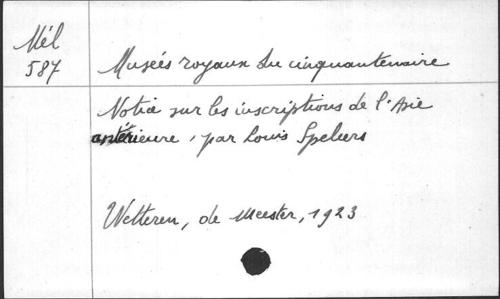 Mél
587
Musées royaux du cinquantenaire
Notice sur les inscriptions de l'Asie
antérieure, par Louis Speleers
Wetteren, de Meester, 1923